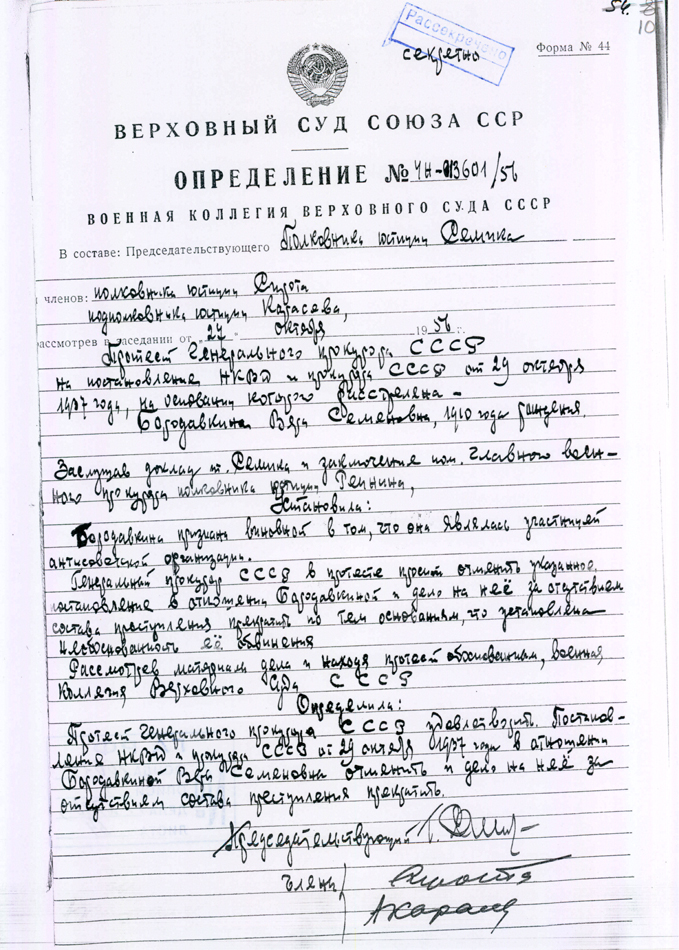 54.
10
Рассекречено
секретно
Форма № 44
ВЕРХОВНЫЙ СУД СОЮЗА ССР
ОПРЕДЕЛЕНИЕ № 4Н-013601/56
ВОЕННАЯ КОЛЛЕГИЯ ВЕРХОВНОГО СУДА СССР
В составе: Председательствующего Полковника юстиции Семика
членов: полковника юстиции Сирота
подполковника юстиции Карасева,
рассмотрев в заседании от "27" октября 1956 г.
Протест Генерального прокурора СССР
на постановление НКВД и прокурора СССР от 29 октября
1937 года, на основании которого расстреляна –
Бородавкина Вера Семеновна, 1910 года рождения.
Заслушав доклад т. Семика и заключение пом. Главного воен-
ного прокурора полковника юстиции
Установила:
Бородавкина признана виновной в том, что она являлась участницей
антисоветской организации.
Генеральный прокурор СССР в протесте просит отменить указанное
постановление в отношении Бородавкиной и дело на неё за отсутствием
состава преступления прекратить по тем основаниям, что установлена
необоснованность её обвинения
Рассмотрев материалы дела и находя протест обоснованным, военная
коллегия Верховного Суда СССР
Определила:
Протест Генерального прокурора СССР удовлетворить. Постанов-
ление НКВД и прокурора СССР от 29 октября 1937 года в отношении
Бородавкиной Вера Семеновна отменить и дело на неё за
отсутствием состава преступления прекратить.
Председательствующий
Члены